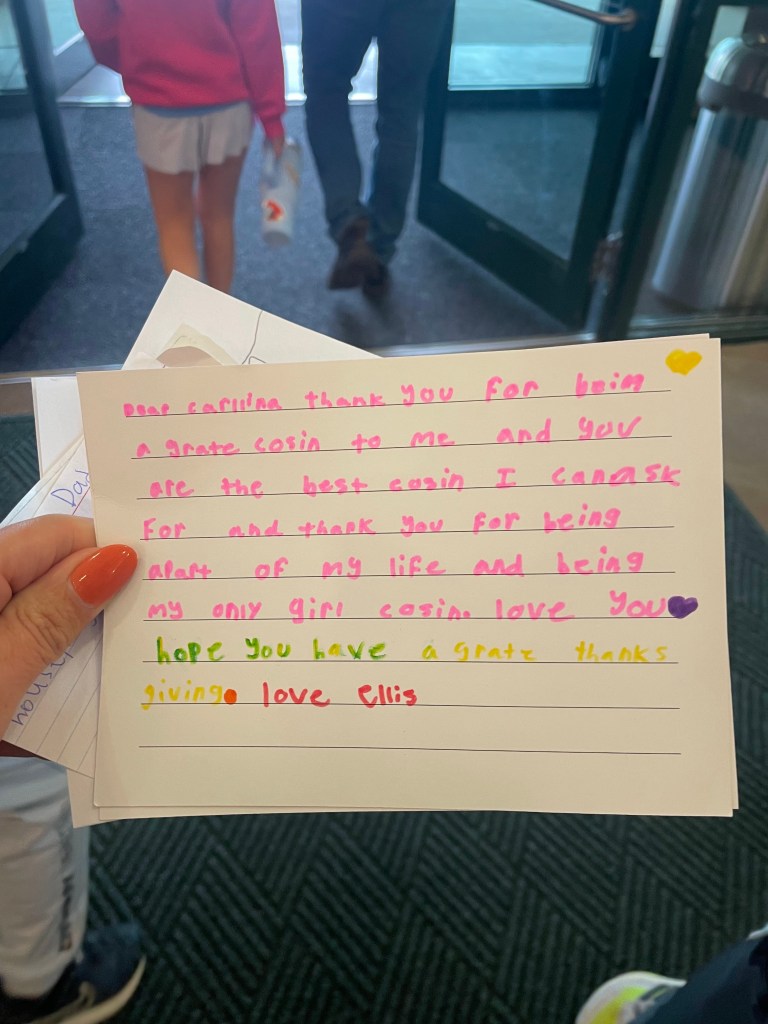 Dear carllina thank you for beim
a grate cosin to me and you
are the best cosin I canask
For and thank you for being
apart of my life and being
my only girl cosin. love you
hope you have a grate thanks
giving. love Ellis
Dad